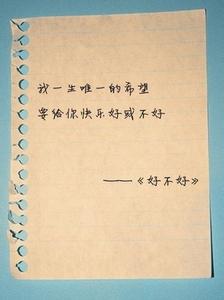 我一生唯一的希望
要给你快乐好或不好
——《好不好》